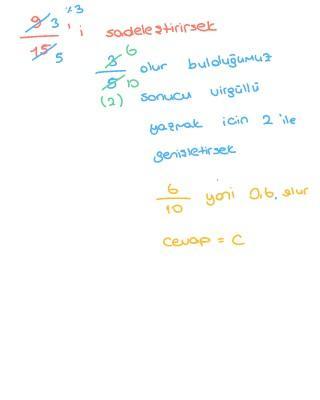 ÷3
9 3 'i sadeleştirirsek
15 5
3 6 olur bulduğumuz
5 10
(2) sonucu virgüllü
yazmak icin 2 ile
genişletirsek
6 yani 0,6 olur
10
cevap = C